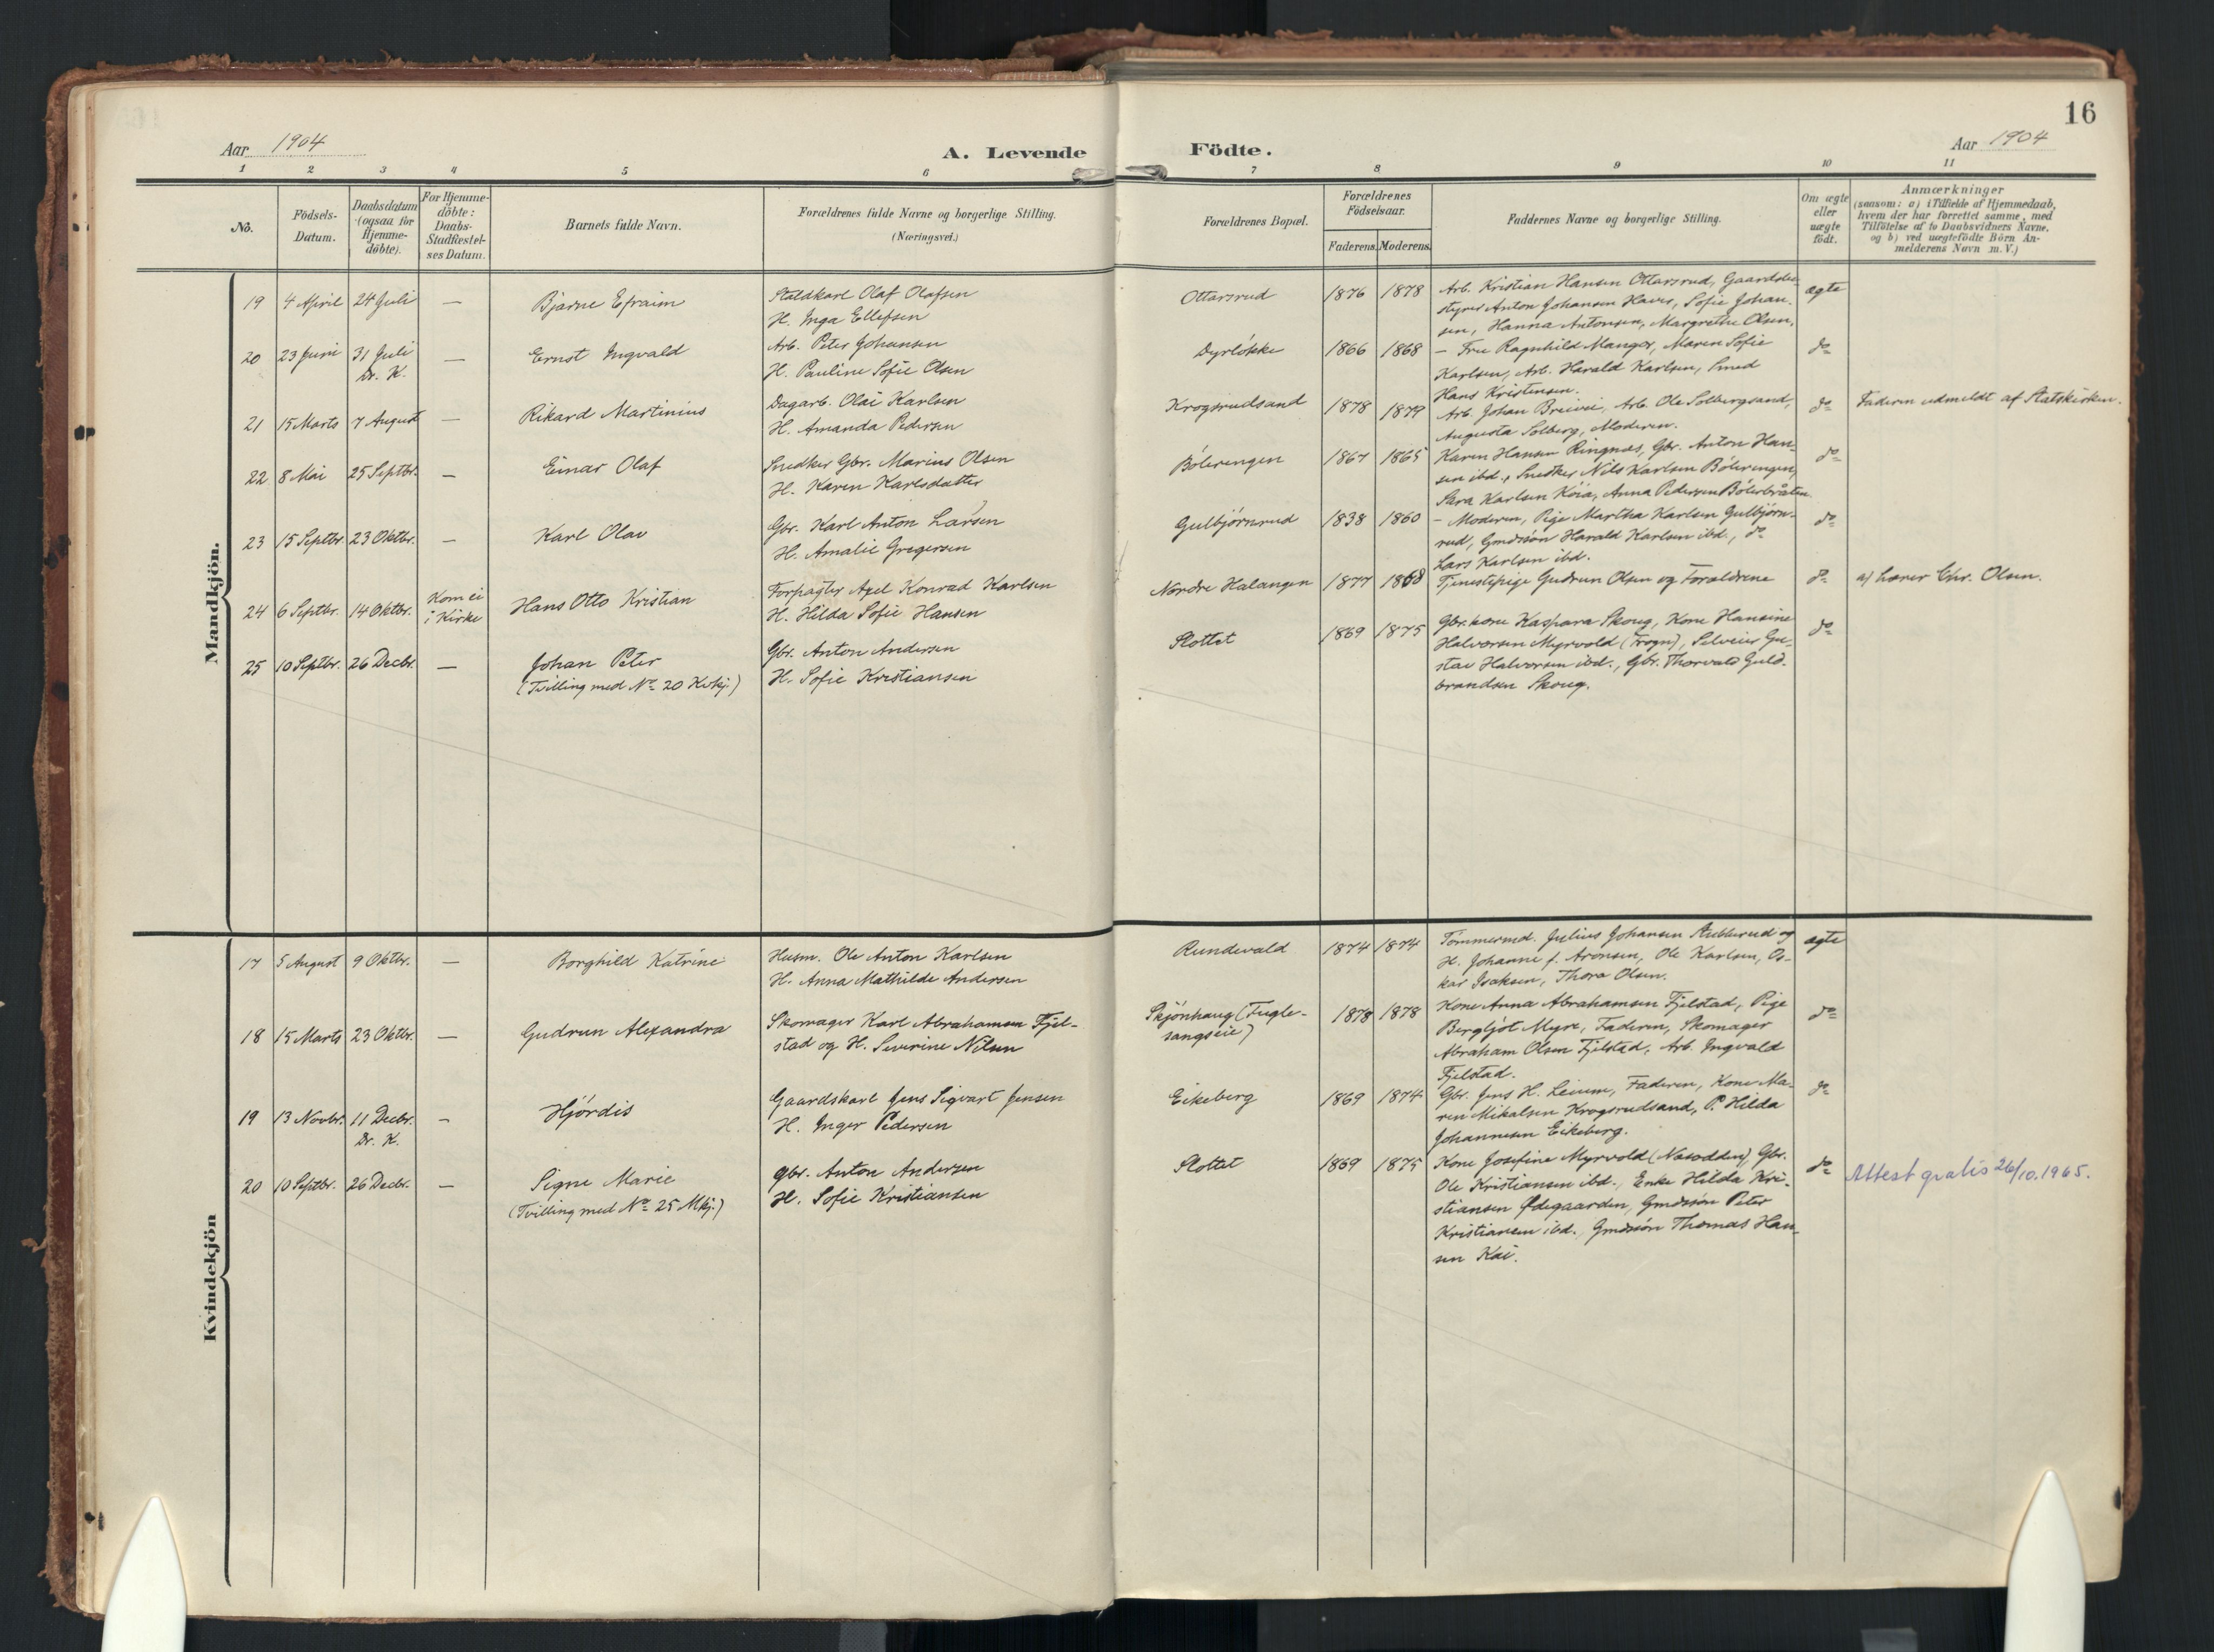 16
Aar 1904
A. Levende Födte.
Aar 1904
1 2 3 4 5 6 7 8 9 10 11
No.
Födsels-Datum.
Daabsdatum (ogsaa for Hjemme-döbte).
For Hjemme-döbte: Daabs-Stadfæstel-ses Datum.
Barnets fulde Navn.
Forældrenes fulde Navne og borgerlige Stilling.
(Næringsvei.)
Forældrenes Bopæl.
Forældrenes Födselsaar.
Faderens. Moderens.
Faddernes Navne og borgerlige Stilling.
Om ægte eller uægte födt.
Anmærkninger
(saasom: a) i Tilfælde af Hjemmedaab,
hvem der har forrettet samme, med
Tilföielse af to Daabsvidners Navne,
og b) ved uægtefödte Börn An-
melderens Navn m.V.)
Mandkjön.
19 4 April 24 Juli — Bjarne Efraim
Staldkarl Olaf Olafsen
H. Inga Ellefsen
Ottarsrud 1876 1878
Arb. Kristian Hansen Ottarsrud, Gaardsbe-
styrer Anton Johansen Haver, Sofie Johan-
sen, Hanna Antonsen, Margrethe Olsen.
ægte
20 23 Juni 31 Juli — Ernst Ingvald
Dr. K.
Arb. Peter Johansen
H. Pauline Sofie Olsen
Dyrlökke 1866 1868
— Fru Ragnhild Manger, Maren Sofie
Karlsen, Arb. Harald Karlsen, Smed
Hans Kristensen.
do
21 15 Marts 7 August — Rikard Martinius
Dagarb. Olai Karlsen
H. Amanda Pedersen
Krogsrudsand 1878 1879
Arb. Johan Breivei, Arb. Ole Solbergsand,
Augusta Solberg, Moderen.
do Faderen udmeldt af Statskirken.
22 8 Mai 25 Septbr. — Einar Olaf
Snedker Gbr. Marius Olsen
H. Karen Karlsdatter
Bölerengen 1867 1865
Karen Hansen Ringnæs, Gbr. Anton Han-
sen ibd., Snedker Nils Karlsen Bölerengen,
Sara Karlsen Köia, Anna Pedersen Bölerbråten
do
23 15 Septbr. 23 Oktbr. — Karl Olav
Gbr. Karl Anton Larsen
H. Amalie Gregersen
Gulbjörnrud 1838 1860
— Moderen, Pige Martha Karlsen Gulbjörn-
rud, Gmdssön Harald Karlsen ibd., do
Lars Karlsen ibd.
do
24 6 Septbr. 14 Oktbr. Kom ei i Kirke Hans Otto Kristian
Forpagter Axel Konrad Karlsen
H. Hilda Sofie Hansen
Nordre Halangen 1877 1868
Tjenestepige Gudrun Olsen og Forældrene
do a) Lærer Chr. Olsen.
25 10 Septbr. 26 Decbr. — Johan Peter
(Tvilling med No 20 Kvkj.)
Gbr. Anton Andersen
H. Sofie Kristiansen
Slottet 1869 1875
Gbr.kone Kaspara Skoug, Kone Hansine
Halvorsen Myrvold (Frogn), Selveier Gu-
stav Halvorsen ibd., Gbr. Thorvald Guld-
brandsen Skoug.
do
Kvindekjön
17 5 August 9 Oktbr. — Borghild Katrine
Husm. Ole Anton Karlsen
H. Anna Mathilde Andersen
Rundevald 1874 1874
Tömmermd. Julius Johansen Stubberud og
H. Johanne f. Aronsen, Ole Karlsen, Os-
kar Isaksen, Thora Olsen.
ægte
18 15 Marts 23 Oktbr. — Gudrun Alexandra
Skomager Karl Abrahamsen Fjel-
stad og H. Severine Nilsen
Skjönhaug (Fugle-
sangseie) 1878 1878
Kone Anna Abrahamsen Fjelstad, Pige
Bergljot Myre, Faderen, Skomager
Abraham Olsen Fjelstad, Arb. Ingvald
Fjelstad.
do
19 13 Novbr. 11 Decbr. — Hjördis
Dr. K.
Gaardskarl Jens Sigvart Jensen
H. Inger Pedersen
Eikeberg 1869 1874
Gbr. Jens H. Leium, Faderen, Kone Ma-
ren Mikalsen Krogsrudsand, P. Hilda
Johannesen Eikeberg.
do
20 10 Septbr. 26 Decbr. — Signe Marie
(Tvilling med No 25 Mkj.)
Gbr. Anton Andersen
H. Sofie Kristiansen
Slottet 1869 1875
Kone Josefine Myrvold (Næsodden), Gbr.
Ole Kristiansen ibd., Enke Hilda Kri-
stiansen Ödegaarden, Gmdssön Peter
Kristiansen ibd., Gmdssön Thomas Han-
sen Kai.
do Attest gratis 26/10.1965.